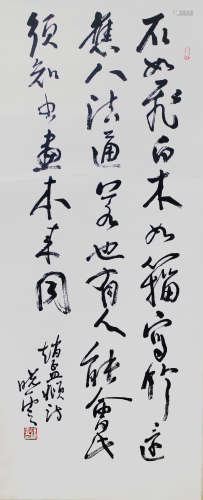 石如飛白木如籀寫竹還
應八法通若也有人能會此
須知書畫本來同
趙孟頫詩
曉雲